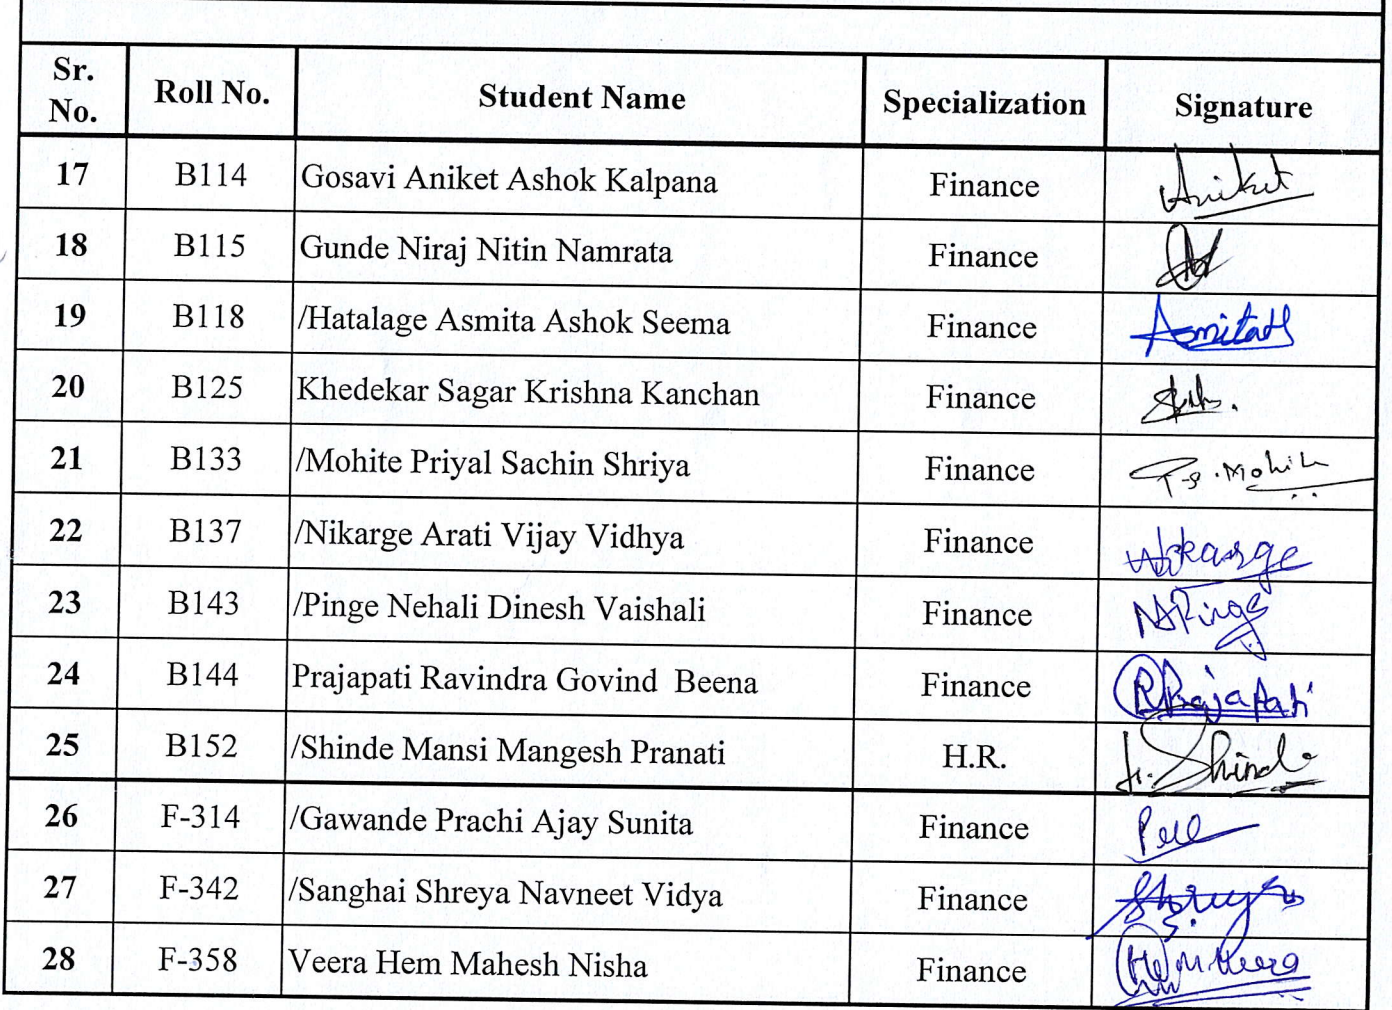 Sr. No. Roll No. Student Name Specialization Signature
17 B114 Gosavi Aniket Ashok Kalpana Finance Aniket
18 B115 Gunde Niraj Nitin Namrata Finance
19 B118 /Hatalage Asmita Ashok Seema Finance AsmitaH
20 B125 Khedekar Sagar Krishna Kanchan Finance
21 B133 /Mohite Priyal Sachin Shriya Finance P.S.Mohite
22 B137 /Nikarge Arati Vijay Vidhya Finance Nikarge
23 B143 /Pinge Nehali Dinesh Vaishali Finance NDPinge
24 B144 Prajapati Ravindra Govind Beena Finance RPrajapati
25 B152 /Shinde Mansi Mangesh Pranati H.R. Shinde
26 F-314 /Gawande Prachi Ajay Sunita Finance
27 F-342 /Sanghai Shreya Navneet Vidya Finance Shreya
28 F-358 Veera Hem Mahesh Nisha Finance